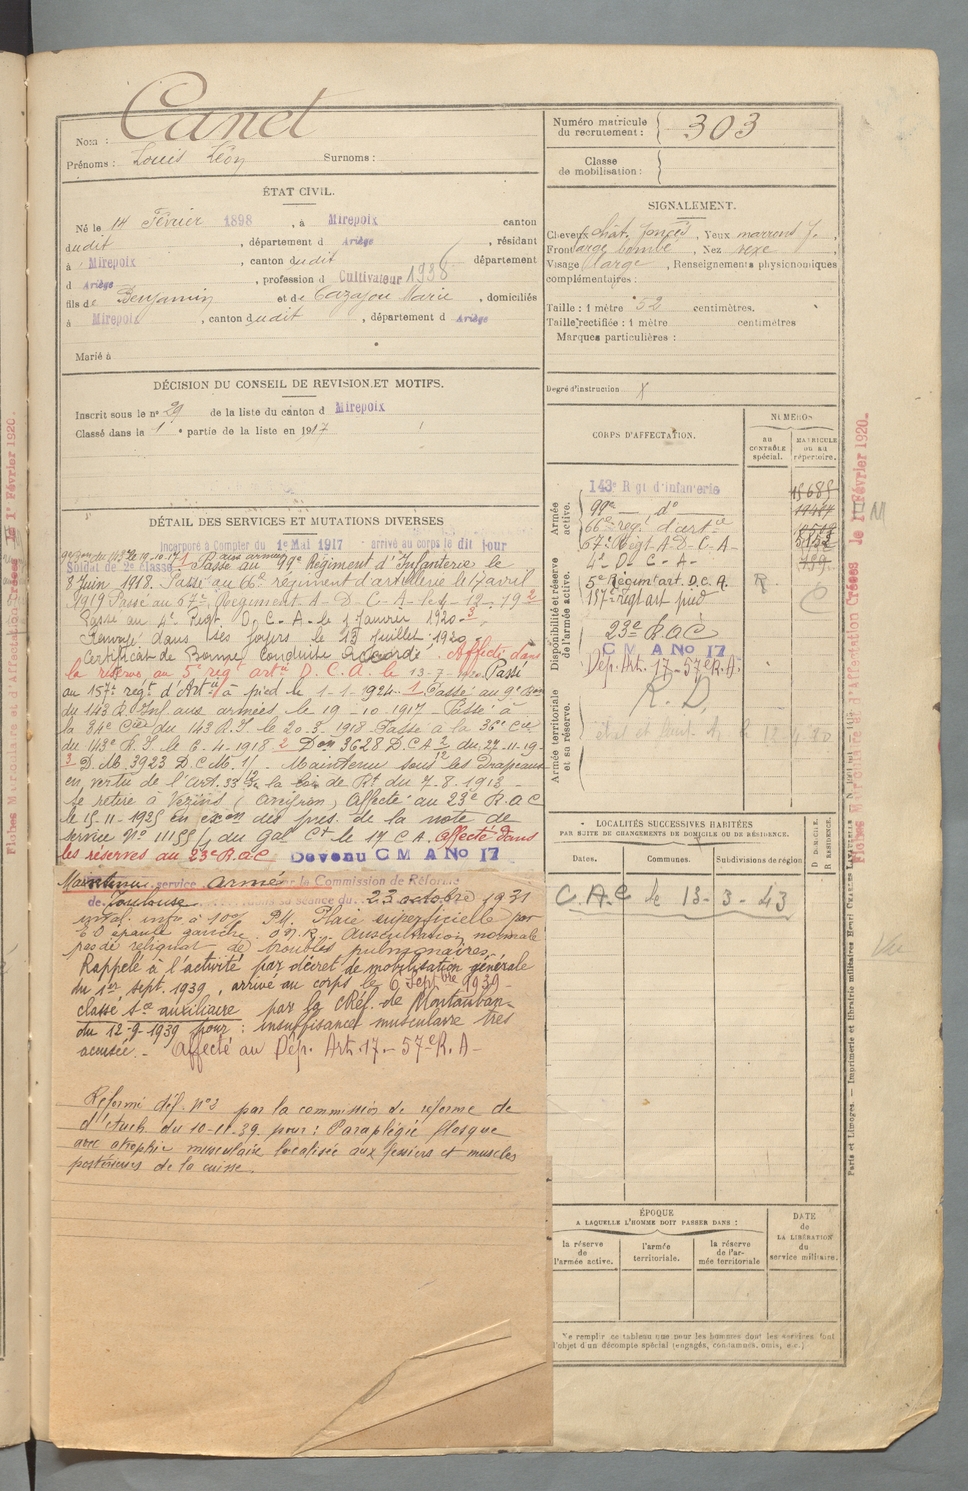 Nom : Canet
Prénoms : Louis Léon Surnoms :
ÉTAT CIVIL.
Né le 14 Février 1898, à Mirepoix canton
dudit, département d Ariège, résidant
à Mirepoix, canton dudit département
d Ariège, profession d Cultivateur 1938
fils de Benjamin et de Cazajou Marie, domiciliés
à Mirepoix, canton dudit, département d Ariège
Marié à
DÉCISION DU CONSEIL DE REVISION ET MOTIFS.
Inscrit sous le nº 29 de la liste du canton d Mirepoix
Classé dans la 1e partie de la liste en 1917
DÉTAIL DES SERVICES ET MUTATIONS DIVERSES
Incorporé à compter du 1e Mai 1917 arrivé au corps le dit jour
Soldat de 2e classe. Passé au 99e Régiment d'Infanterie le
8 Juin 1918. Passé au 66e régiment d'artillerie le 17 avril
1919 Passé au 67e Régiment A-D-C-A- le 1-12-19 2
Passé au 4e Regt. D. C-A- le 1 Janvier 1920- 3
Renvoyé dans ses foyers le 13 Juillet 1920
Certificat de Bonne Conduite Accordé. Affecté dans
la réserve au 5e régt artie D.C.A. le 13-7-1920 Passé
au 157e regt d'Artie à pied le 1-1-1924. 1 Passé au 9e Bon
du 143 R. Inf aux armées le 19-10-1917 Passé à
la 34e Cie du 143 R.I. le 20-3-1918 Passé à la 36e Cie
du 143e R.I. le 6-4-1918 2 Don 3628 D.C.A 2/12 du 27-11-19-
3 D.M. 3923 D.C.M. 1/. Maintenu sous les Drapeaux
en vertu de l'art. 33 de la loi de Rt du 7-8-1913
se retire à Vezins (Aveyron) Affecté au 23e R.A.C
le 15-11-1925 en exon des pres. de la note de
service Nº 11155/1 du Gal Ct le 17 C.A. Affecté dans
les réserves au 23e R.A.C Devenu C M A No 17
Maintenu service armé par la Commission de Réforme
de Toulouse dans sa séance du 23 octobre 1931
inval. infre à 10% P.M. Plaie superficielle par
E.O épaule gauche. Auscultation normale
pas de reliquat de troubles pulmonaires
Rappelé à l'activité par décret de mobilisation générale
du 1er sept. 1939, arrivé au corps le 6 Septbre 1939-
classé sce auxiliaire par la C Réf. de Montauban
du 12-9-1939 pour : insuffisance musculaire très
accusée.- Affecté au Dép. Art. 17-57e R.A-
Réformé déf. nº2 par la commission de réforme de
d'Auch du 10-11-39 pour : Paraplégie flasque
avec atrophie musculaire localisée aux fessiers et muscles
postérieurs de la cuisse.
Numéro matricule du recrutement : 303
Classe de mobilisation :
SIGNALEMENT.
Cheveux chât. foncés, Yeux marrons f.,
Front large bombé, Nez vexe,
Visage large, Renseignements physionomiques
complémentaires :
Taille : 1 mètre 52 centimètres.
Taille rectifiée : 1 mètre centimètres
Marques particulières :
Degré d'instruction X
CORPS D'AFFECTATION.
NUMÉROS
AU CONTRÔLE spécial.
MATRICULE OU AU répertoire.
Armée active.
143e Rgt d'Infanterie
99e — do —
66e rég. d'artie
67e Régt A-D-C-A-
4e D- C- A-
Disponibilité et réserve de l'armée active.
5e Régim! art. D.C.A. R
157e régt art pied
23e R.A.C
C M A No 17
Dép. Art. 17-57e R.A.
Armée territoriale et sa réserve.
R. D.
LOCALITÉS SUCCESSIVES HABITÉES
PAR SUITE DE CHANGEMENTS DE DOMICILE OU DE RÉSIDENCE.
Dates. Communes. Subdivisions de région
D DOMICILE.
R RÉSIDENCE.
C.A.C le 13-3-43
Vu
ÉPOQUE
A LAQUELLE L'HOMME DOIT PASSER DANS :
la réserve de l'armée active.
l'armée territoriale.
la réserve de l'armée territoriale
DATE de LA LIBÉRATION du service militaire.
Ne remplir ce tableau que pour les hommes dont les services font
l'objet d'un décompte spécial (engagés, condamnés, omis, etc.)
Paris et Limoges. — Imprimerie et librairie militaires Henri CHARLES-LAVAUZELLE
Fiches Matriculaire et d'Affectation Créées le 1er Février 1920.
Fiches Matriculaire et d'Affectation Créées le 1er Février 1920.